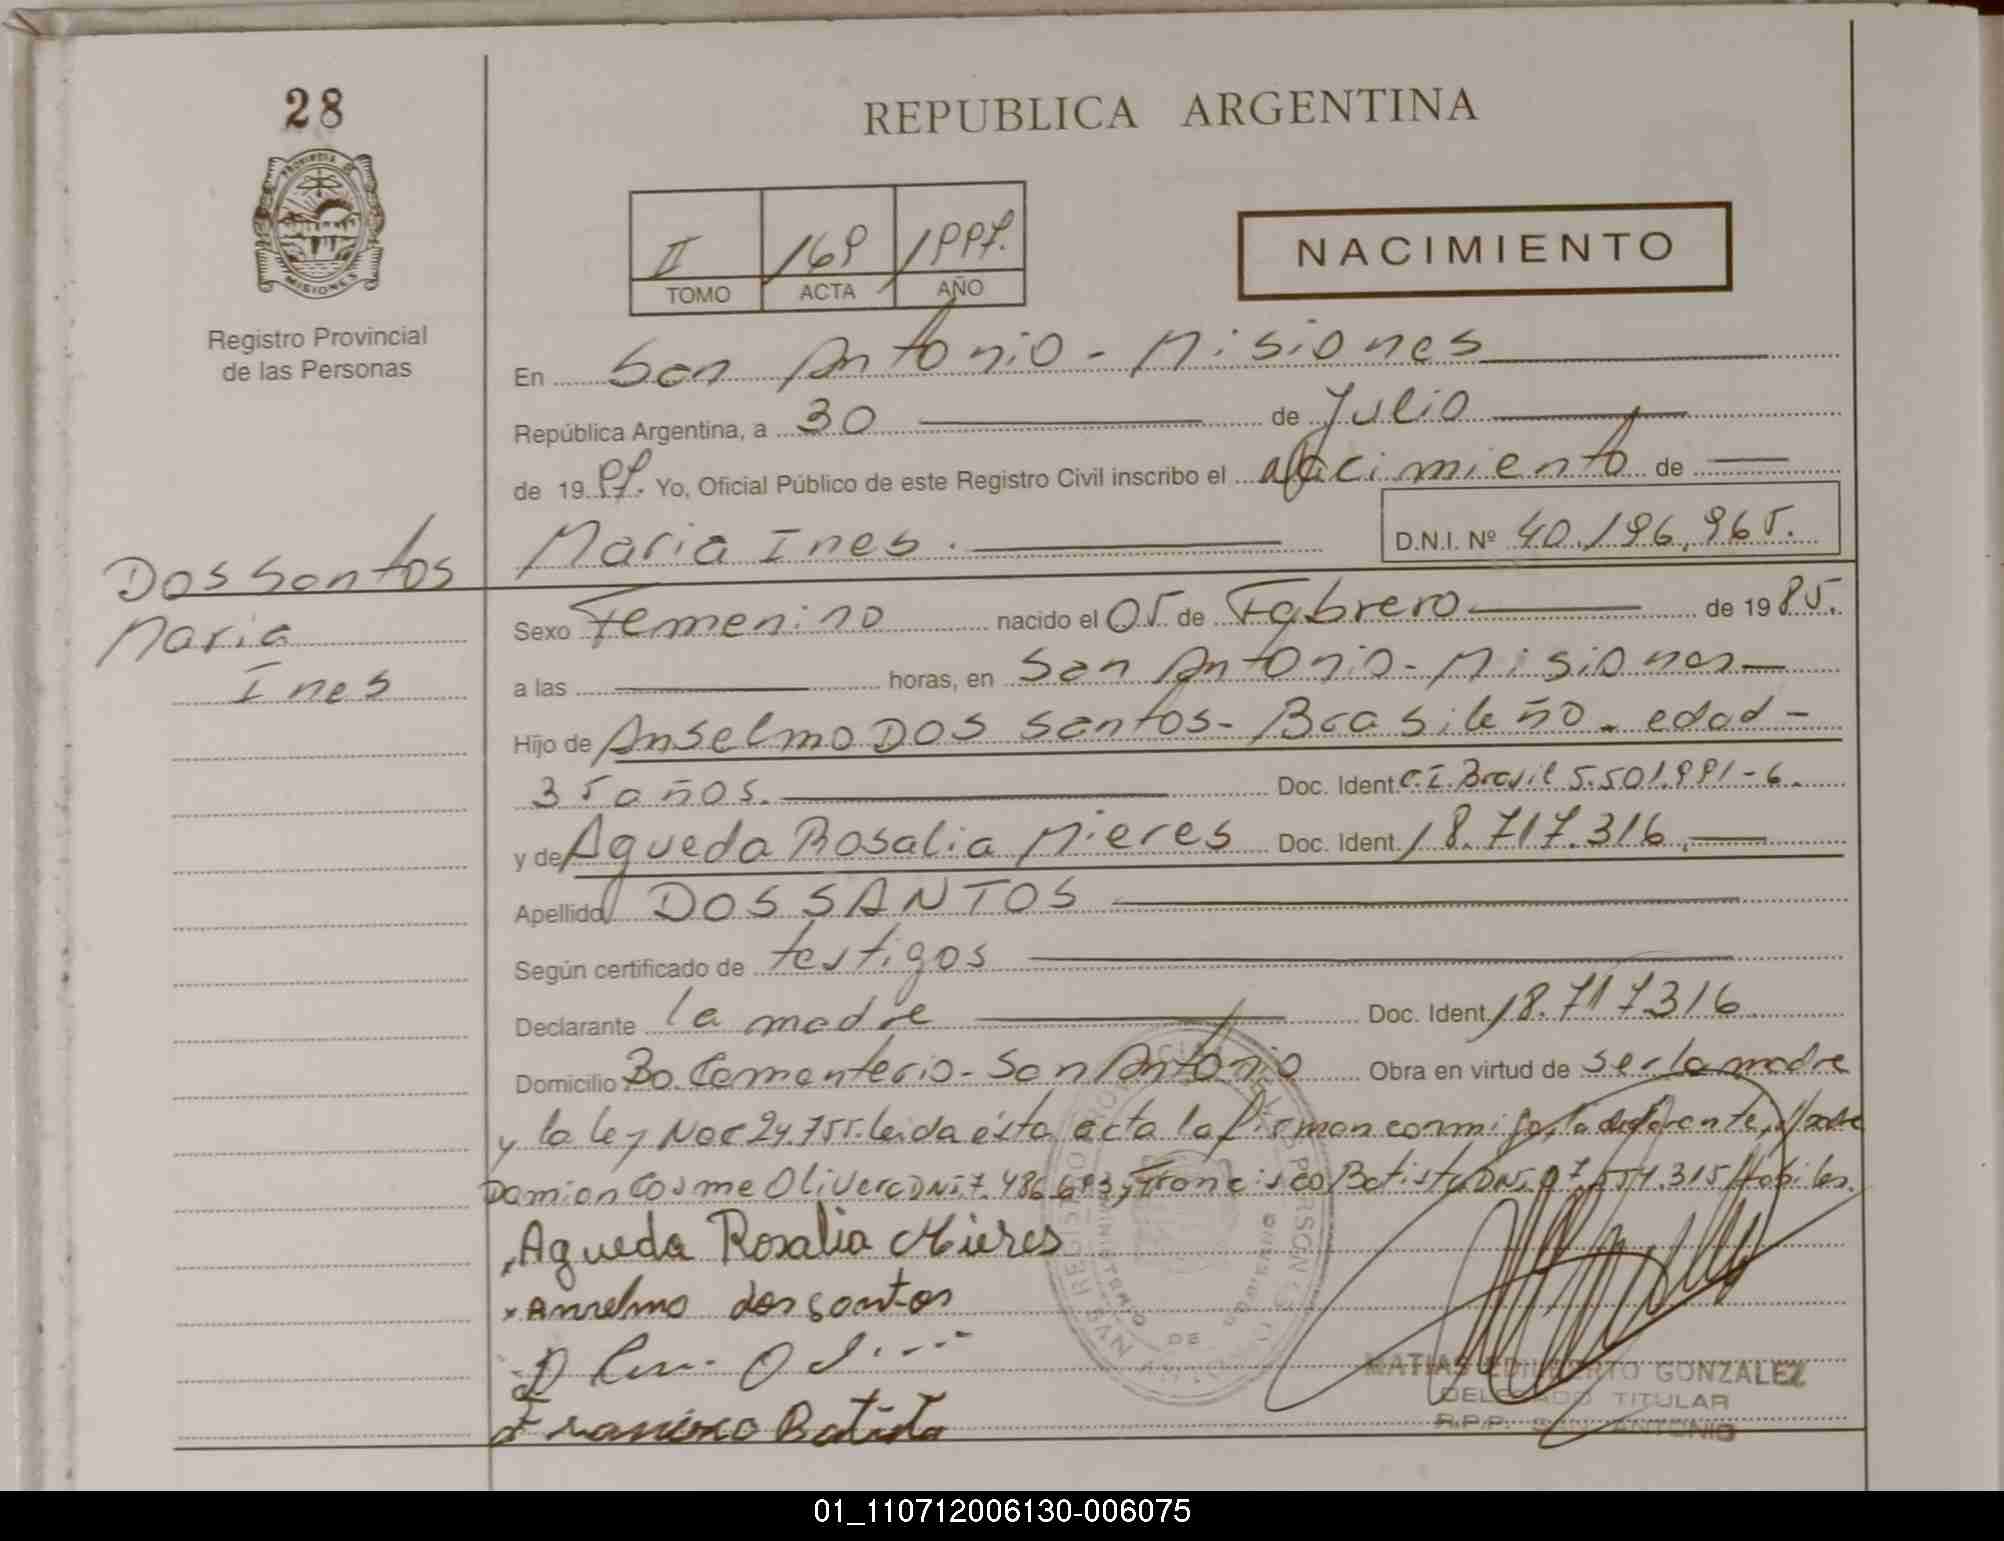 28
PROVINCIA DE
MISIONES
Registro Provincial
de las Personas
REPUBLICA ARGENTINA
II 169 1997.
TOMO ACTA AÑO
NACIMIENTO
En San Antonio - Misiones
República Argentina, a 30 de Julio
de 1997. Yo, Oficial Público de este Registro Civil inscribo el nacimiento de
Maria Ines. D.N.I. Nº 40.196.965.
Dos Santos
Maria
Ines
Sexo Femenino nacido el 05 de Febrero de 1985.
a las horas, en San Antonio - Misiones
Hijo de Anselmo DOS Santos - Brasileño - edad -
35 años. Doc. Ident. C.I. Brasil 5.501.991-6.
y de Agueda Rosalia Mieres Doc. Ident. 18.717.316.
Apellido DOS SANTOS
Según certificado de testigos
Declarante la madre Doc. Ident. 18.717316
Domicilio Bo. Cementerio - San Antonio Obra en virtud de ser la madre
y la ley Nac 24.755. leida ésta acta la firman conmigo, la declarante,
Damion Cosme Olivera DNI 7.486.693, Francisco Batista DNI 07.554.315 Habiles.
Agueda Rosalia Mieres
x Anselmo dos santos
Francisco Batista
MATIAS EDILBERTO GONZALEZ
DELEGADO TITULAR
R.P.P. SAN ANTONIO
DE
01_110712006130-006075